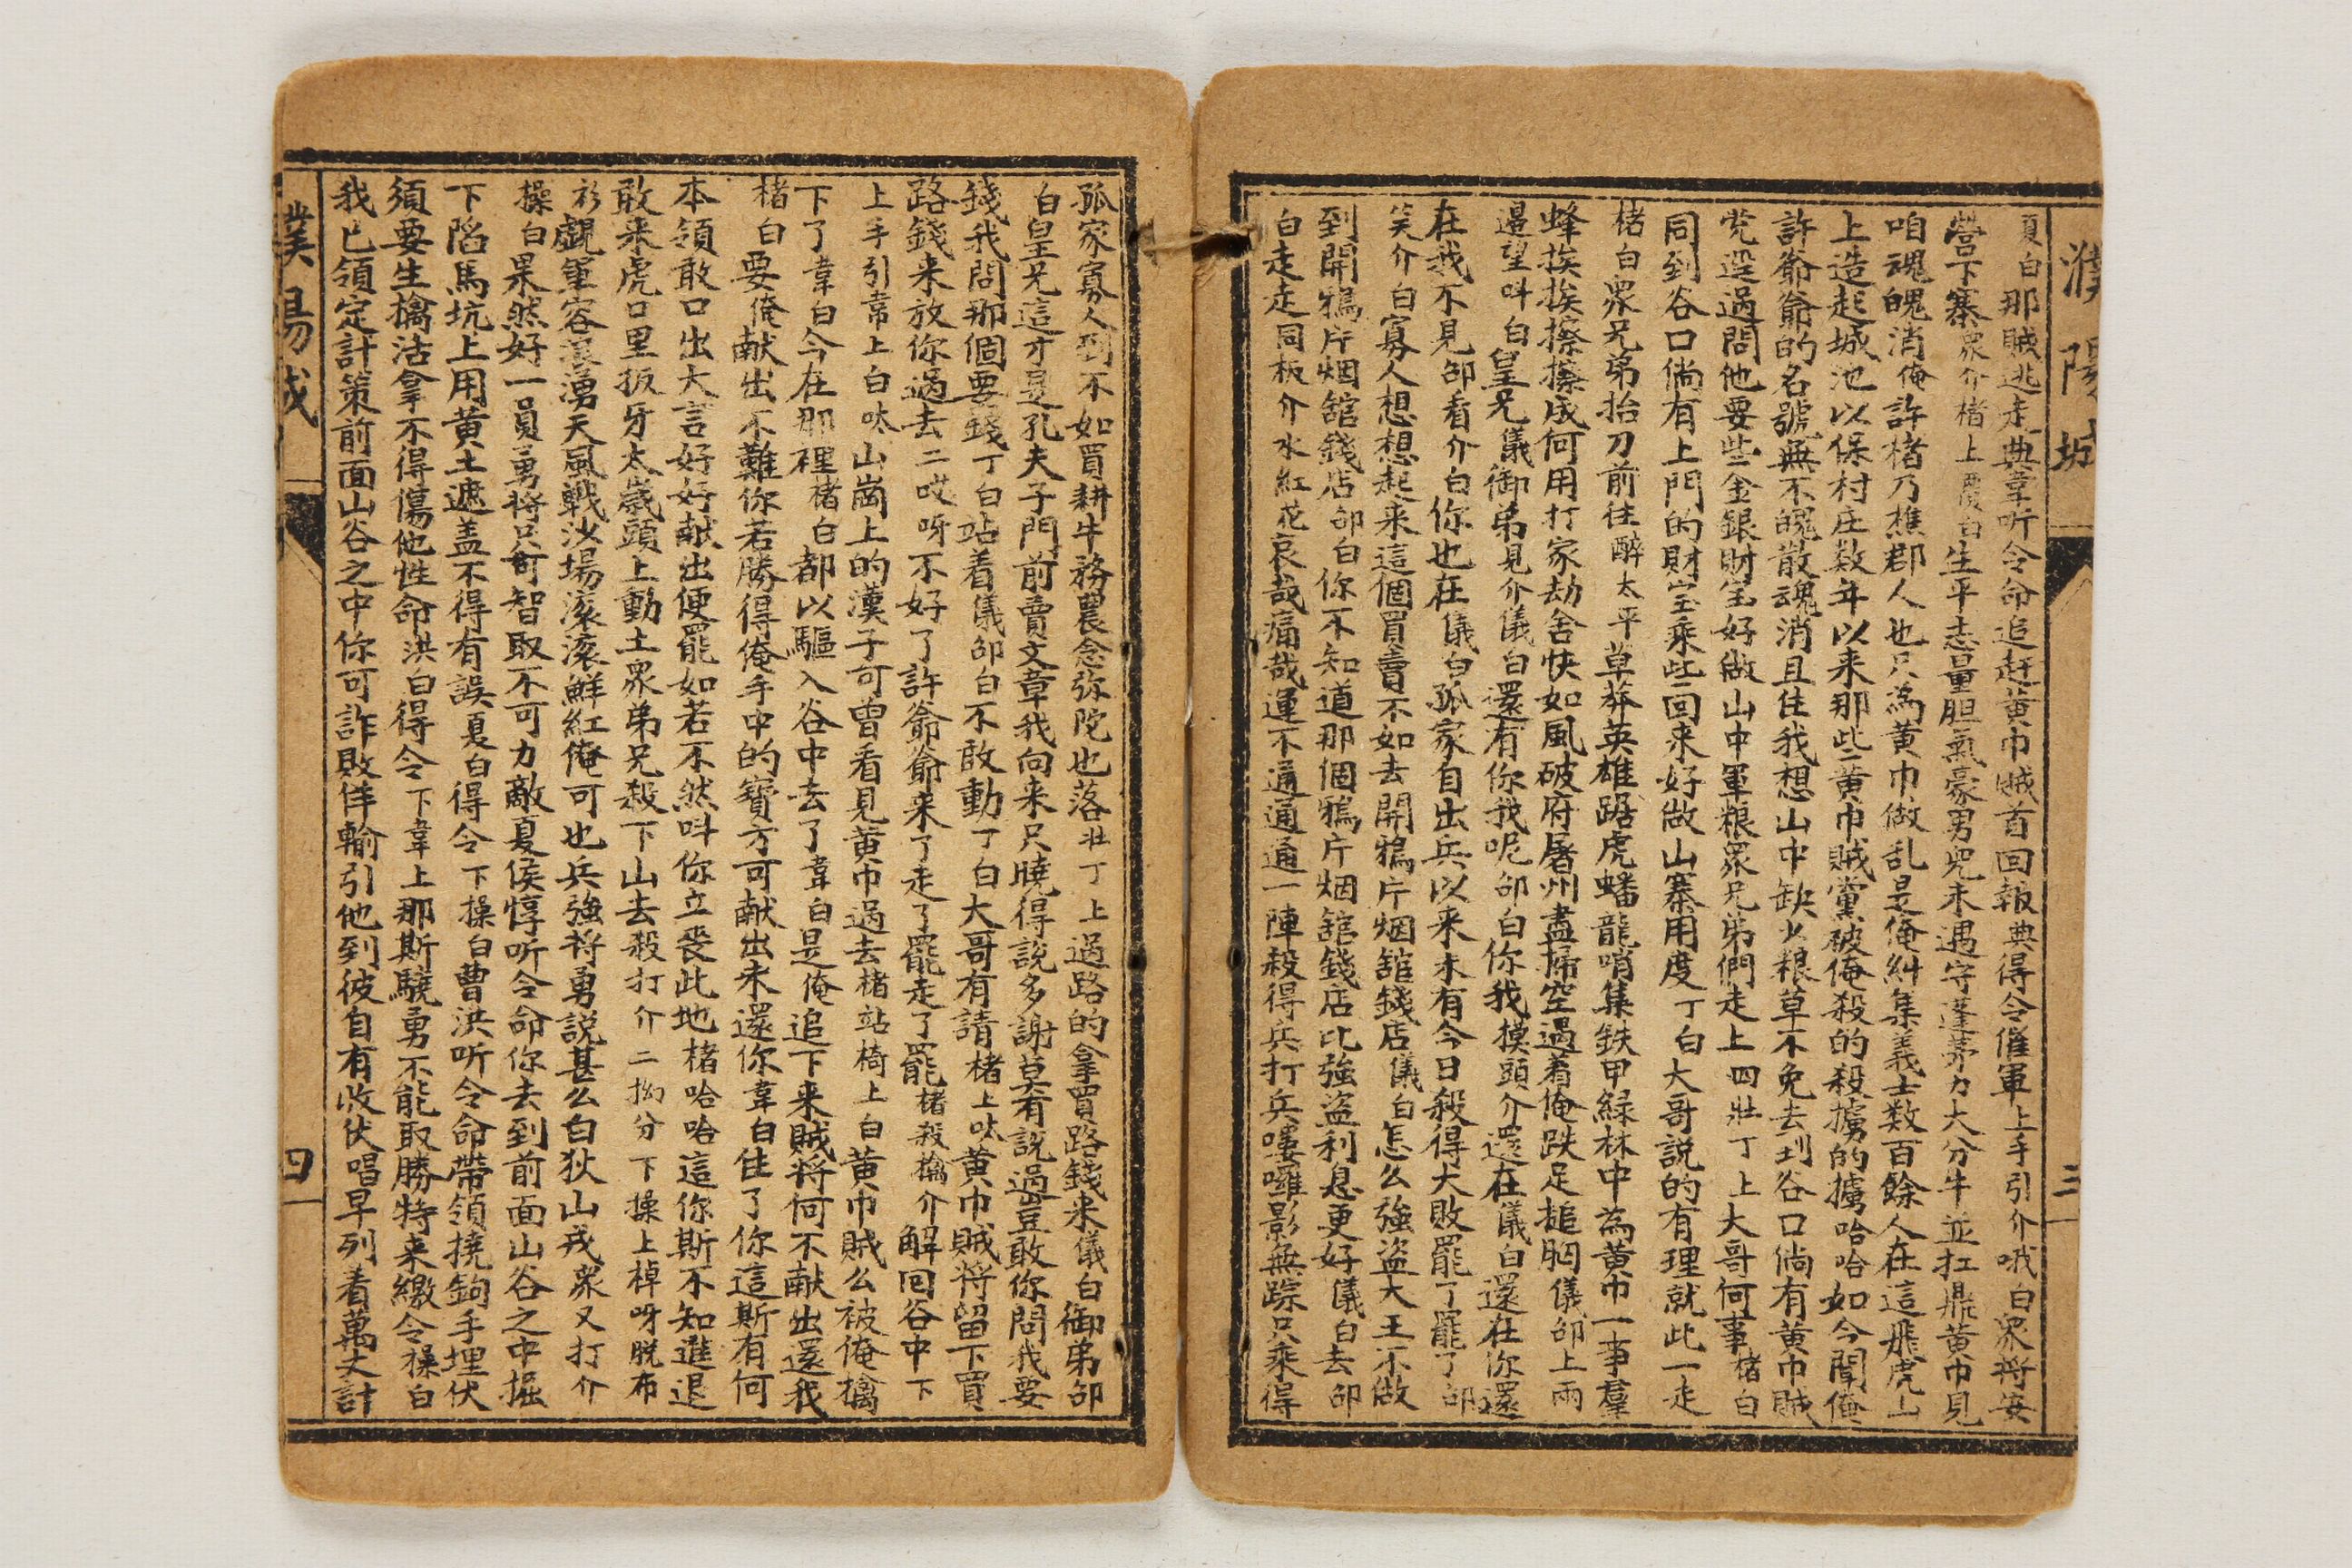 濮陽城
三
夏白那賊逃走典韋听令命追赶黄巾贼首回報典得令催軍上手引介哦白衆将安
營下寨衆介楮上霞白生平志量胆氣豪男兒未遇守蓬茅力大分牛並扛鼎黄巾見
咱魂魄消俺許楮乃樵郡人也只為黄巾做乱是俺糾集義士数百餘人在這飛虎山
上造起城池以保村庄数年以来那些黄巾賊黨被俺殺的殺擄的擄哈哈如今聞俺
許爺爺的名號無不魄散魂消且住我想山中缺少粮草不免去到谷口倘有黄巾賊
党逕過問他要些金銀財宝好做山中軍粮衆兄弟們走上四壯丁上大哥何事楮白
同到谷口倘有上門的財宝乘些回来好做山寨用度丁白大哥説的有理就此一走
楮白衆兄弟抬刀前往醉太平草莽英雄踞虎蟠龍哨集鉄甲緑林中為黄巾一事羣
蜂挨挨擦擦成何用打家劫舍快如風破府屠州盡掃空遇着俺跌足搥胸儀邵上兩
邊望呌白皇兄儀御弟見介儀白還有你我呢邵白你我摸頭介還在儀白還在你還
在我不見邵看介白你也在儀白孤家自出兵以来未有今日殺得大敗罷了罷了邵
笑介白寡人想想起来這個買賣不如去開鴉片烟舘錢店儀白怎么強盗大王不做
到開鴉片烟舘錢店邵白你不知道那個鴉片烟舘錢店比強盗利息更好儀白去邵
白走走同板介水紅花哀哉痛哉運不通通通一陣殺得兵打兵嘍囉影無踪只乘得
孤家寡人到不如買耕牛務農念弥陀也落壮丁上過路的拿買路錢来儀白御弟邵
白皇兄這才是孔夫子門前賣文章我向来只曉得説多謝莫有説過豈敢你問我要
錢我問那個要錢丁白站着儀邵白不敢動丁白大哥有請楮上呔黄巾賊将留下買
路錢来放你過去二哎呀不好了許爺爺来了走了罷走了罷楮殺擒介解囘谷中下
上手引韋上白呔山崗上的漢子可曾看見黄巾過去楮站椅上白黄巾賊么被俺擒
下了韋白今在那裡楮白都以驅入谷中去了韋白是俺追下来賊将何不献出還我
楮白要俺献出不難你若勝得俺手中的寶方可献出来還你韋白住了你這斯有何
本領敢口出大言好好献出便罷如若不然呌你立喪此地楮哈哈這你斯不知進退
敢来虎口里扳牙太歲頭上動土衆弟兄殺下山去殺打介二拗分下操上棹呀脱布
衫覷軍容滚湧天風戰沙場滚滚鮮紅俺可也兵強将勇説甚么白狄山戎衆又打介
操白果然好一員勇将只可智取不可力敵夏侯惇听令命你去到前面山谷之中掘
下陷馬坑上用黄土遮盖不得有誤夏白得令下操白曹洪听令命帶領撓鉤手埋伏
須要生擒活拿不得傷他性命洪白得令下韋上那斯驍勇不能取勝特来繳令操白
我已領定計策前面山谷之中你可詐敗佯輸引他到彼自有收伏唱早列着萬丈計
濮陽城
四